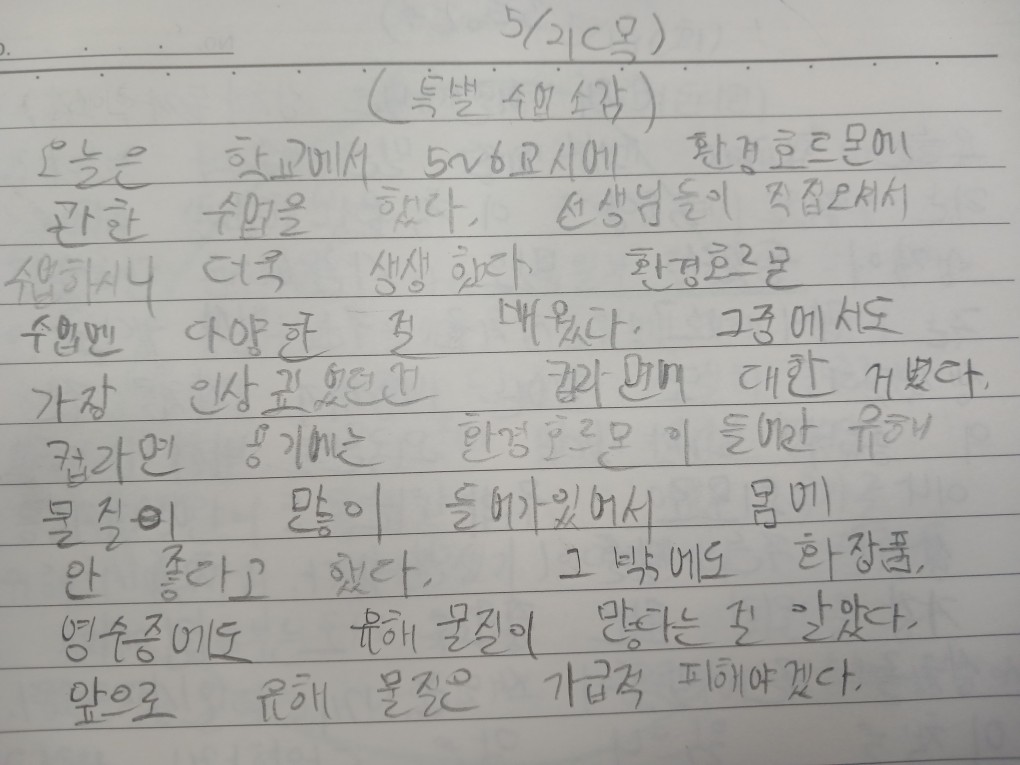 5/21(목)
(특별 수업 소감)
오늘은 학교에서 5~6교시에 환경호르몬에
관한 수업을 했다. 선생님들이 직접오셔서
수업하시니 더욱 생생했다. 환경호르몬
수업엔 다양한 걸 배웠다. 그중에서도
가장 인상깊었던건 컵라면에 대한 거였다.
컵라면 용기에는 환경호르몬이 들어간 유해
물질이 많이 들어가있어서 몸에
안 좋다고 했다. 그 밖에도 화장품,
영수증에도 유해물질이 많다는 걸 알았다.
앞으로 유해 물질은 가급적 피해야겠다.